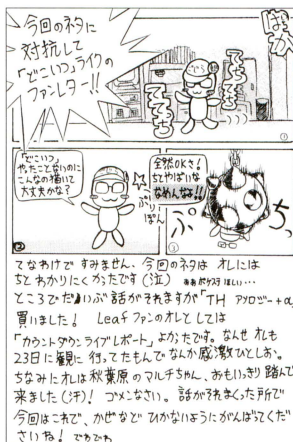 今回のネタに
対抗して
「どこいつ」ライクの
ファンレター!!
てってってってっ
「どこいつ」
やったことないのに
こんなの描いて
大丈夫かな?
全然OKさ!
ちとやばいな
なめんなよ!!
ぷり
ぽん
ぷ
ちっ
てなわけで すみません、今回のネタは オレには
ちと わかりにくかったです(泣)
ところでだいぶ話がそれますが「TH アンソロジー+α」
買いました! Leafファンのオレとしては
「カウントダウンライブレポート」よかったです。なんせ オレも
23日に観に行ってたもんでなんか感激ひとしお。
ちなみにオレは秋葉原のマルチちゃん、おもいっきり踏んで
来ました(汗)! ゴメンなさい。話がそれまくった所で
今回はこれで、かぜなど ひかないようにがんばってくだ
さいね! でわでわ